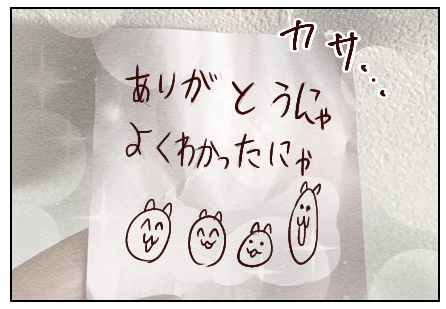 カサ...
ありがとうにゃ
よくわかったにゃ